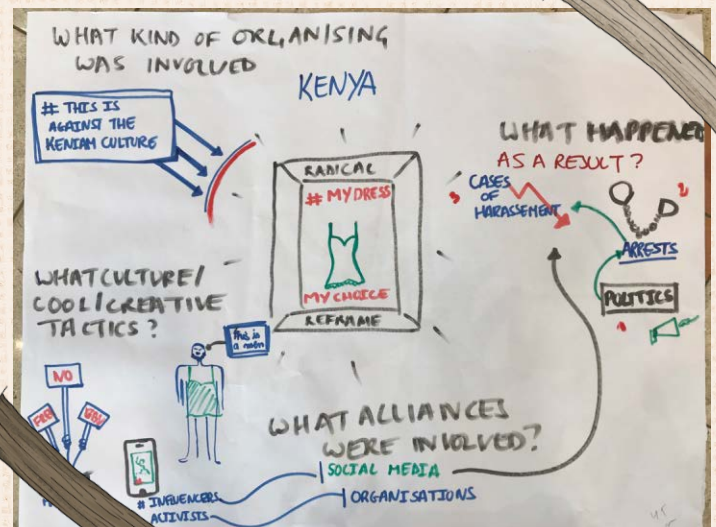 WHAT KIND OF ORGANISING
WAS INVOLVED
KENYA
# THIS IS
AGAINST THE
KENIAM CULTURE
RADICAL
# MY DRESS
MY CHOICE
REFRAME
WHAT HAPPENED
AS A RESULT?
3
CASES
OF
HARASSEMENT
2
ARRESTS
POLITICS
1
WHAT CULTURE/
COOL/CREATIVE
TACTICS?
This is
a men
NO
WHAT ALLIANCES
WERE INVOLVED?
SOCIAL MEDIA
# INFLUENCERS
ORGANISATIONS
ACTIVISTS